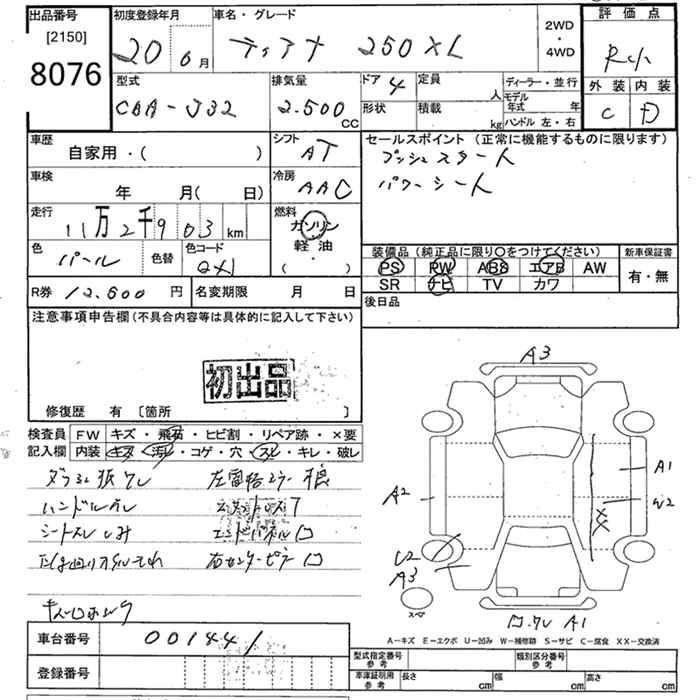 出品番号
[2150]
8076
初度登録年月
20 6月
車名・グレード
ティアナ 250XL
2WD
・
4WD
評価点
外装 内装
C D
型式
CBA-J32
排気量
2.500
cc
ドア 4
定員
人
形状
積載
kg
ディーラー・並行
モデル
年式 年
ハンドル 左・右
車歴
自家用・( )
シフト
AT
セールスポイント (正常に機能するものに限ります)
プッシュスタート
パワーシート
車検
年 月( 日)
冷房
AAC
走行
11万2千903km
燃料
ガソリン
軽油
( ・ )
色
パール
色替
色コード
QX1
装備品(純正品に限り○をつけてください)
PS PW ABS エアB AW
SR ナビ TV カワ
新車保証書
有・無
R券 12.500 円
名変期限 月 日
後日品
注意事項申告欄(不具合内容等は具体的に記入して下さい)
初出品
修復歴 有 〔箇所 〕
検査員
記入欄
FW キズ・飛石・ヒビ割・リペア跡・×要
内装 キズ・汚レ・コゲ・穴・スレ・キレ・破レ
ハンドルスレ
シートスレ しみ
エンドパネル
右センターピラー
A3
A1
A2
W2
U2
A3
XX
スペア
A1
A-キズ E-エクボ U-凹み W-補修跡 S-サビ C-腐食 XX-交換済
車台番号 001441
登録番号
型式指定番号
参考
類別区分番号
参考
車庫証明用
参考
長さ cm 幅 cm 高さ cm